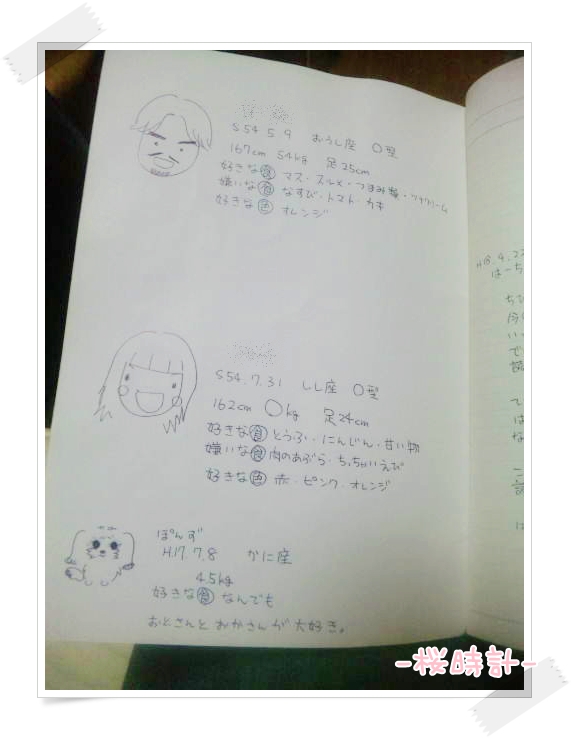 S54 5 9 おうし座 O型
167cm 54kg 足25cm
好きな食 マス・スルメ・つまみ類・
嫌いな食 なすび・トマト カキ
好きな色 オレンジ
S54.7.31 しし座 O型
162cm ○kg 足24cm
好きな食 とうふ・にんじん・甘い物
嫌いな食 肉のあぶら・ちっちゃいえび
好きな色 赤・ピンク・オレンジ
ぽんず
H17.7.8 かに座
4.5kg
好きな食 なんでも
おとさんと おかさんが 大好き。
H18.4.22
はーち
-桜時計-